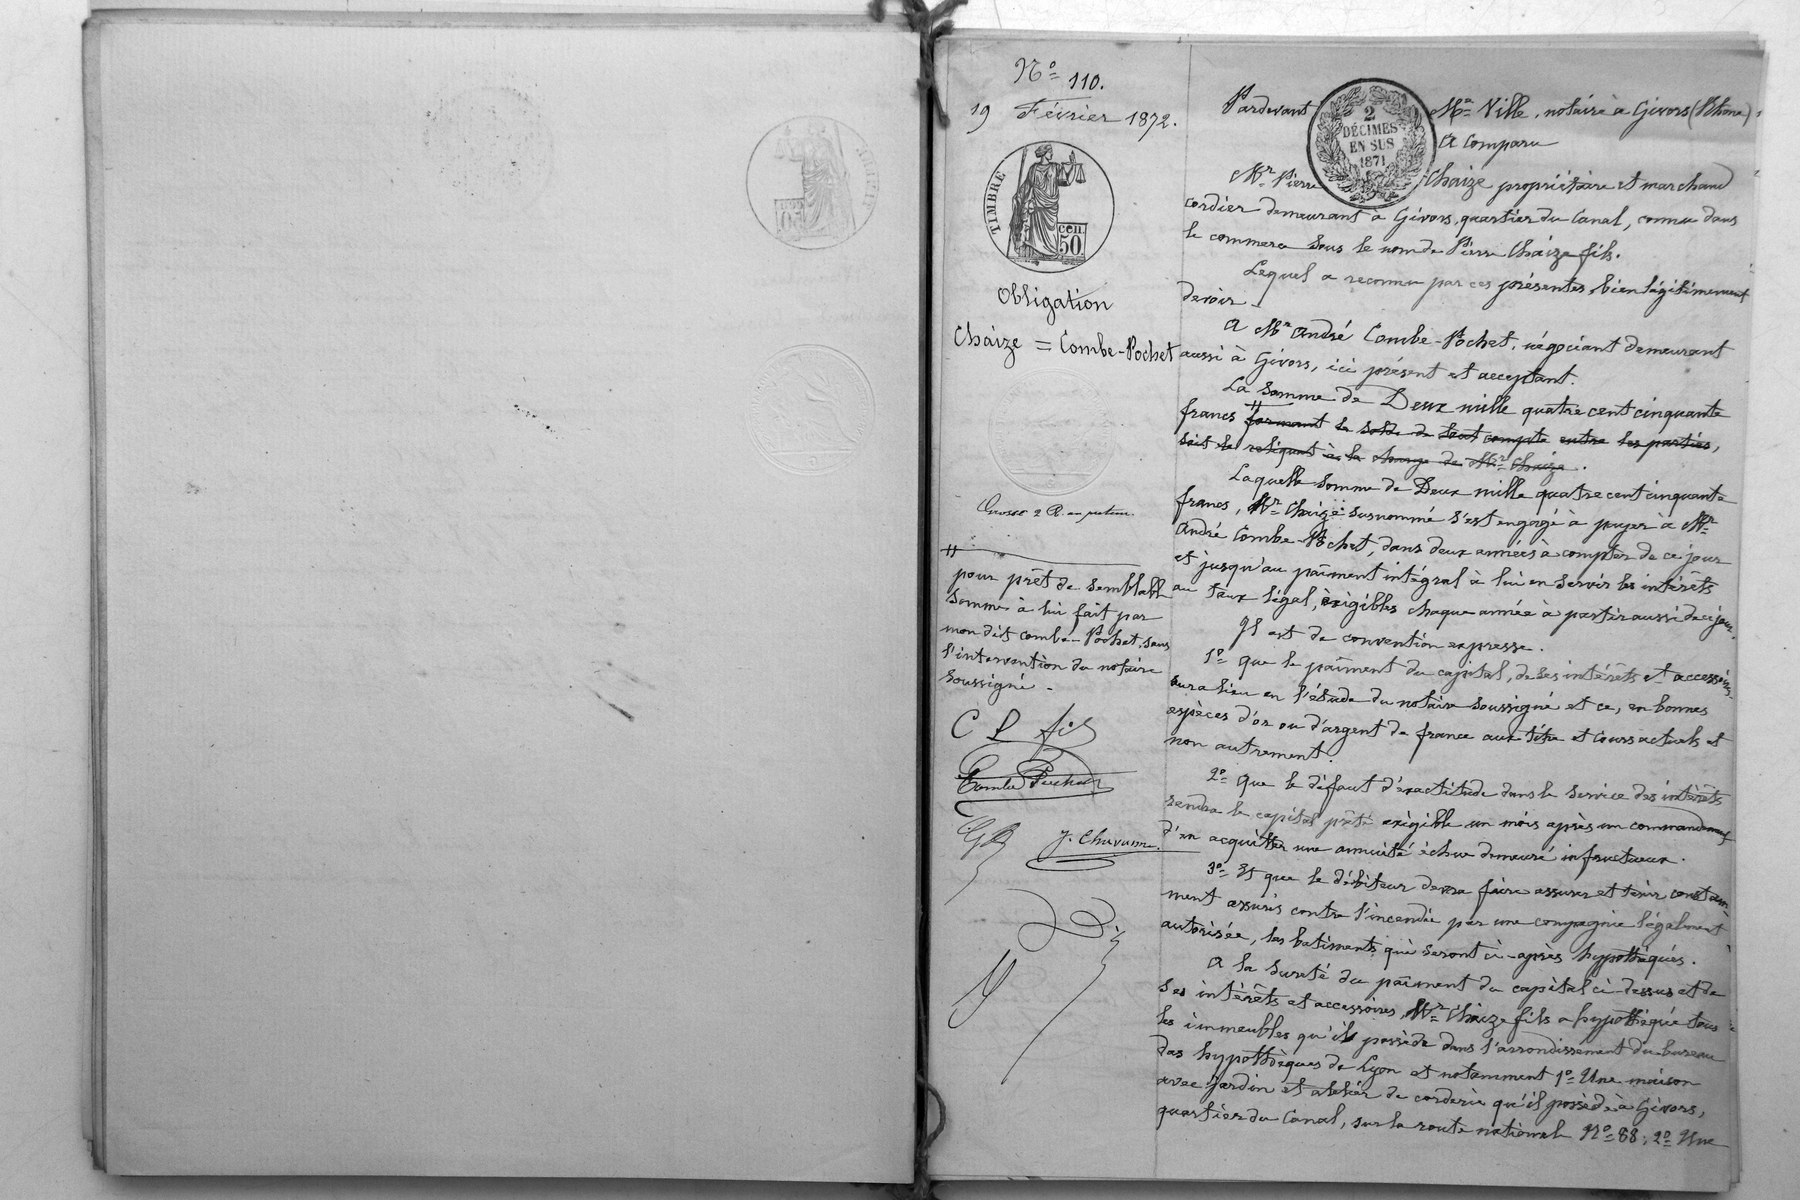 Nº 110.
19 Février 1872.
TIMBRE
cen.
50
Obligation
Chaize = Combe-Pochet
Grosse 2 R.
pour prêt de semblable
somme à lui fait par
mon dit combe-Pochet, sans
l'intervention du notaire
soussigné -
C P fils
Combe Pochet
J. Chavanne
2
DÉCIMES
EN SUS
1871
Pardevant Me Ville, notaire à Givors (Rhone)
A Comparu
Mr Pierre Chaize propriétaire et marchand
cordier demeurant à Givors, quartier du Canal, connu dans
le commerce sous le nom de Pierre Chaize fils.
Lequel a reconnu par ces présentes, bien légitimement
devoir -
A Mr André Combe-Pochet, négociant demeurant
aussi à Givors, ici présent et acceptant.
La somme de Deux mille quatre cent cinquante
francs formant le solde de tout compte entre les parties,
soit le reliquat à la charge de Mr Chaize.
Laquelle somme de Deux mille quatre cent cinquante
francs, Mr Chaize susnommé s'est engagé à payer à Mr
André Combe-Pochet, dans deux années à compter de ce jour
et jusqu'au paîment intégral à lui en servir les intérêts
au taux légal, exigibles chaque année à partir aussi de ce jour.
Il est de convention expresse.
1º que le paîment du capital, de ses intérêts et accessoires
aura lieu en l'étude du notaire soussigné et ce, en bonnes
espèces d'or ou d'argent de france aux titre et cours actuels et
non autrement.
2º que le défaut d'exactitude dans le service des intérêts
rendra le capital prêté exigible un mois après un commandement
d'en acquitter une annuité échue demeuré infructueux.
3º Et que le débiteur devra faire assurer et tenir constam-
ment assurés contre l'incendie par une compagnie légalement
autorisée, les batiments qui seront ci-après hypothéqués.
A la sureté du paîment du capital ci-dessus et de
ses intérêts et accessoires, Mr Chaize fils a hypothéqué tous
les immeubles qu'il possède dans l'arrondissement du bureau
des hypothèques de Lyon et notamment 1º Une maison
avec jardin et atelier de corderie qu'il possède à Givors,
quartier du Canal, sur la route nationale Nº 88; 2º Une